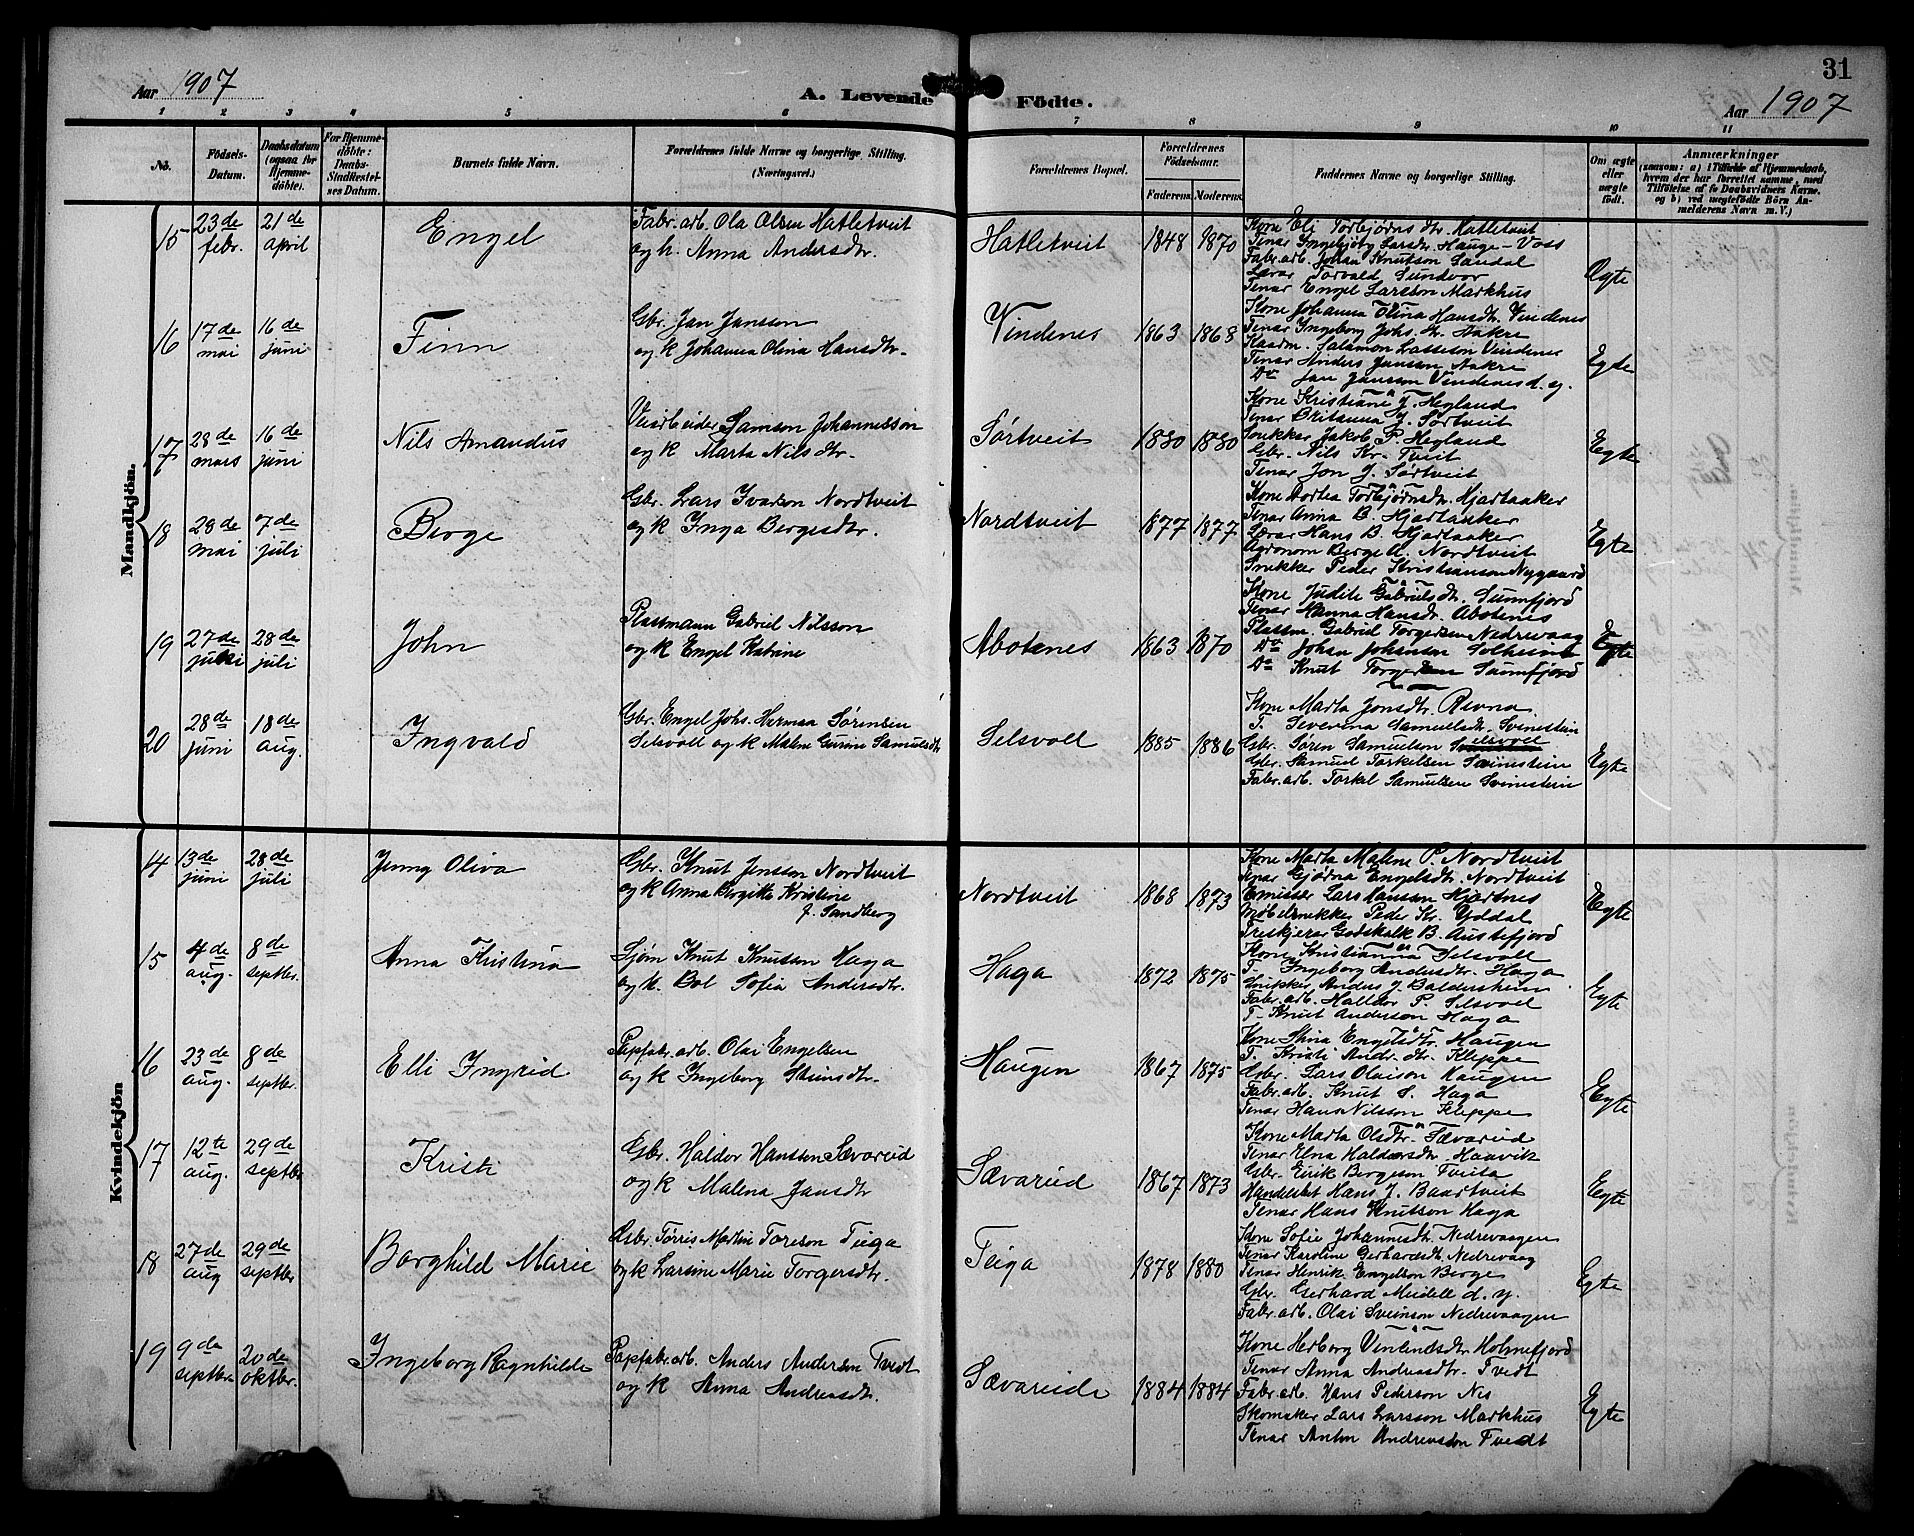 31
Aar 1907
A. Levende Födte.
Aar 1907
1 2 3 4 5 6 7 8 9 10 11
No.
Födsels-Datum.
Daabsdatum (ogsaa for Hjemme-döbte).
For Hjemme-döbte: Daabs-Stadfæstel-ses Datum.
Barnets fulde Navn.
Forældrenes fulde Navne og borgerlige Stilling. (Næringsvei.)
Forældrenes Bopæl.
Forældrenes Födselsaar.
Faderens. Moderens.
Faddernes Navne og borgerlige Stilling.
Om ægte eller uægte födt.
Anmærkninger
(saasom: a) i Tilfælde af Hjemmedaab, hvem der har forrettet samme, med Tilföielse af to Daabsvidners Navne, og b) ved uægtefödte Börn An-melderens Navn m. V.)
Mandkjön.
15 23de febr. 21de april Engel
Fabr. arb. Ola Olsen Hatletveit
og k. Anna Andersdtr.
Hatletveit 1848 1870
Kone Eli Torbjørnsdtr. Hatletveit
Tenar Ingebjøbg Larsdtr. Hauge - Voss
Fabr. arb. Johan Knutson Sandal
Lærar Torvald Sundvor
Tenar Engel Larsson Markhus
Ægte
16 17de mai 16de juni Finn
Gbr. Jan Jansson
og k Johanna Olina Hansdtr.
Vindenes 1863 1868
Kone Johanna Olina Hansdtr. Vindenes
Tenar Ingeborg Johs. dtr. Aakre
Kaarm. Salamon Lasseson Vindenes
Tenar Anders Jansson Aakre
Do Jan Jansson Vindenes d. y.
Egte
17 28de mars 16de juni Nils Amandus
Veiarbeider Samson Johannesson
og k Marta Nilsdtr.
Sørtveit 1880 1880
Kone Kristiane J. Hegland
Tenar Britanna J. Sørtveit
Snikkar Jakob P. Hegland
Gbr. Nils Kr. Tveit
Tenar Jon J. Sørtveit
Egte
18 28de mai 7de juli Berge
Gbr. Lars Ivarson Nordtveit
og k Inga Bergesdtr.
Nordtveit 1877 1877
Kone Dortea Torbjørnsdtr. Hjartaaker
Tenar Anna B. Hjartaaker
Lærar Hans B. Hjartaaker
Agronom Berge A. Nordtveit
Snikker Peder Kristianson Nygaard
Egte
19 27de juli 28de juli John
Plassmann Gabriel Nilsson
og k Engel Katrine
Abotenes 1863 1870
Kone Judite Gabrielsdtr. Sumfjord
Tenar Hanna Hansdtr. Abotenes
Plassm. Gabriel Torgersen Nedrevaag
Do Johan Johansen Solheim
Do Knut Torgersen Sumfjord
Egte
20 28de juni 18de aug. Ingvald
Gbr. Engel Johs. Herman Sørensen
Selsvoll og k Malene Gurine Samuelsdtr
Selsvoll 1885 1886
Kone Marta Jonsdtr. Revna
T. Severina Samuelsdtr. Svinestein
Gbr. Søren Samuelson Selsvoll
Gbr. Samuel Torkelsen Svinestein
Fabr. arb. Torkel Samuelsen Svinestein
Egte
Kvindekjön
14 13de juni 28de juli Jenny Oliva
Gbr. Knut Jensson Nordtveit
og k Anna Birgitte Kristine
f. Sandberg
Nordtveit 1868 1873
Kone Marta Malene P. Nordtveit
Tenar Gjødna Engelsdtr. Nordtveit
Emissær Lars Hanson Hjartnes
Møbelsnikker Peder Kr. Yddal
Treskjerar Godskalk B. Austefjord
Egte
15 4de aug. 8de septbr. Anna Kristina
Sjøm Knut Knutsen Haga
og k. Bol Sofia Andersdtr.
Haga 1872 1875
Kone Kristianna Selsvoll
T. Ingeborg Andersdtr. Haga
Snikker Anders J. Baldersheim
Fabr. arb. Halldor P. Selsvoll
T. Knut Anderson Haga
Egte
16 23de aug. 8de septbr. Elli Ingrid
Papfabr. arb. Olai Engelsen
og k Ingeborg Steinsdtr.
Haugen 1867 1875
Kone Stina Engelsdtr. Haugen
T. Kristi Andr. dtr. Kleppe
Gbr. Lars Olaison Haugen
Fabr. arb. Knut S. Haga
Tenar Hans Nilsson Kleppe
Egte
17 12te aug. 29de septbr Kristi
Gbr. Haldor Hansson Sævareid
og k Malena Jansdtr
Sævareid 1867 1873
Kone Marta Olsdtr. Sævareid
Tenar Elna Haldorsdtr. Haavik
Gbr. Eirik Bergeson Tveita
Handelsbet Hans J. Baartveit
Tenar Hans Knutson Haga
Egte
18 27de aug 29de septbr Borghild Marie
Gbr Tørris Martin Toreson Teiga
og k Larsine Marie Torgersdtr.
Teiga 1878 1880
Kone Sofie Johannesdtr. Nedrevaagen
Tenar Karoline Gerhardsdtr. Nedrevaag
Tenar Henrik Engelson Berge
Gbr. Gerhard Meidell d. y.
Fabr. arb. Olai Sveinson Nedrevaagen
Egte
19 9de septbr 20de oktbr. Ingeborg Ragnhilde
Papfabr. arb. Anders Andersen Tvedt
og k Anna Andreasdtr.
Sævareide 1884 1884
Kone Herborg Vinlendsdtr. Holmefjord
Tenar Anna Andreasdtr. Tvedt
Fabr. arb. Hans Pederson Nes
Skomaker Lars Larsson Markhus
Tenar Anton Andreasson Tvedt
Egte